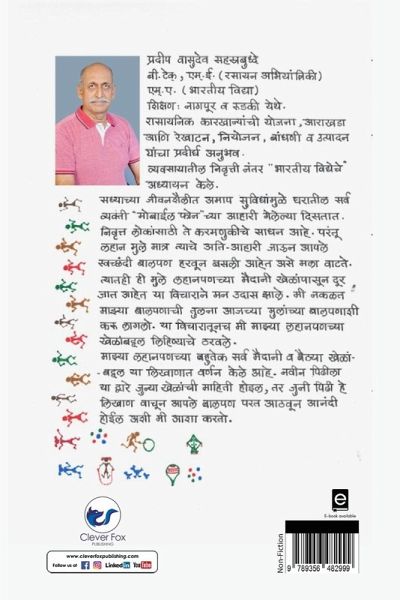 प्रदीप वासुदेव सहस्रबुध्दे
बी.टेक्, एम्.ई. (रसायन अभियांत्रिकी)
एम्.ए. (भारतीय विद्या)
शिक्षण: नागपूर व रुडकी येथे.
रासायनिक कारखान्यांची योजना, आराखडा
आणि रेखाटन, नियोजन, बांधणी व उत्पादन
यांचा प्रदीर्घ अनुभव.
व्यवसायातील निवृत्ती नंतर "भारतीय विद्येचे"
अध्यायन केले.
सध्याच्या जीवनशैलीत अमाप सुविधांमुळे घरातील सर्व
व्यक्ती "मोबाईल फोन"च्या आहारी गेलेल्या दिसतात.
निवृत्त लोकांसाठी ते करमणुकीचे साधन आहे. परंतू
लहान मुले मात्र त्याचे अति-आहारी जाऊन आपले
स्वच्छंदी बालपण हरवून बसली आहेत असे मला वाटते.
त्यातही ही मुले लहानपणच्या मैदानी खेळांपासून दूर
जात आहेत या विचाराने मन उदास झाले. मी नकळत
माझ्या बालपणाची तुलना आजच्या मुलांच्या बालपणाशी
करू लागलो. या विचारातूनच मी माझ्या लहानपणच्या
खेळांबद्दल लिहिण्याचे ठरवले.
माझ्या लहानपणच्या बहुतेक सर्व मैदानी व बैठ्या खेळां-
बद्दल या लिखाणात वर्णन केले आहे. नवीन पिढीला
या द्वारे जुन्या खेळांची माहिती होइल, तर जुनी पिढी हे
लिखाण वाचून आपले बालपण परत आठवून आनंदी
होईल अशी मी आशा करतो.
Clever Fox
PUBLISHING
www.cleverfoxpublishing.com
Follow us at
LinkedIn
YouTube
e
E-book available
Non-Fiction
9 789356 482999